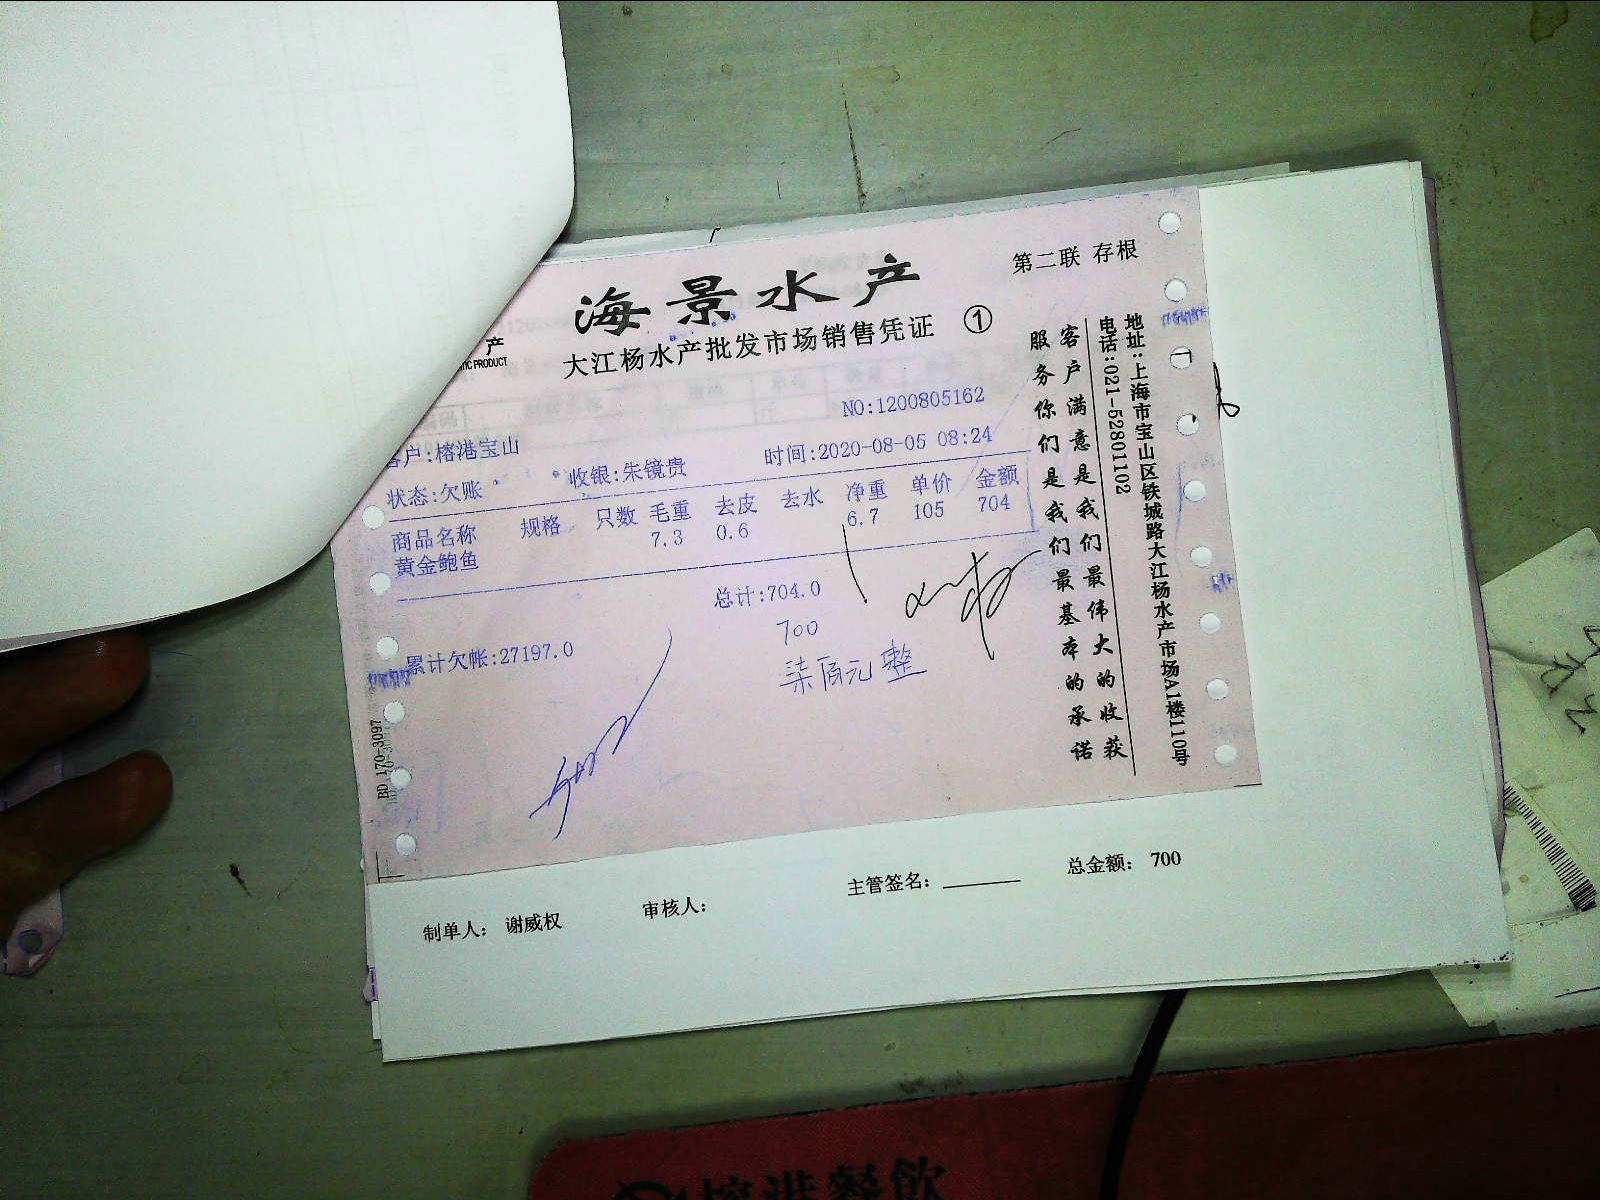 第二联 存根
海景水产
大江杨水产批发市场销售凭证 ①
产
TIC PRODUCT
NO:1200805162
客户:榕港宝山
时间:2020-08-05 08:24
状态:欠账
收银:朱镜贵
商品名称 规格 只数 毛重 去皮 去水 净重 单价 金额
黄金鲍鱼 7.3 0.6 6.7 105 704
总计:704.0
700
柒佰元整
累计欠帐:27197.0
地址:上海市宝山区铁城路大江杨水产市场A1楼110号
电话:021-52801102
客户满意是我们最伟大的收获
服务你们是我们最基本的承诺
制单人: 谢威权
审核人:
主管签名:
总金额: 700
榕港餐饮